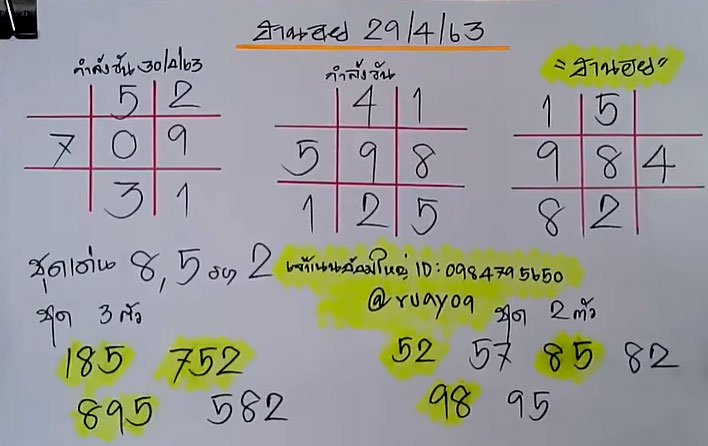 ฮานอย 29/4/63
กำลังวัน 30/4/63
กำลังวัน
"ฮานอย"
5 2
7 0 9
3 1
4 1
5 9 8
1 2 5
1 5
9 8 4
8 2
ชุดเด่น 8,5 รอง 2
ID: 0984795650
@ruay09
ชุด 3 ตัว
ชุด 2 ตัว
185 752
895 582
52 57 85 82
98 95